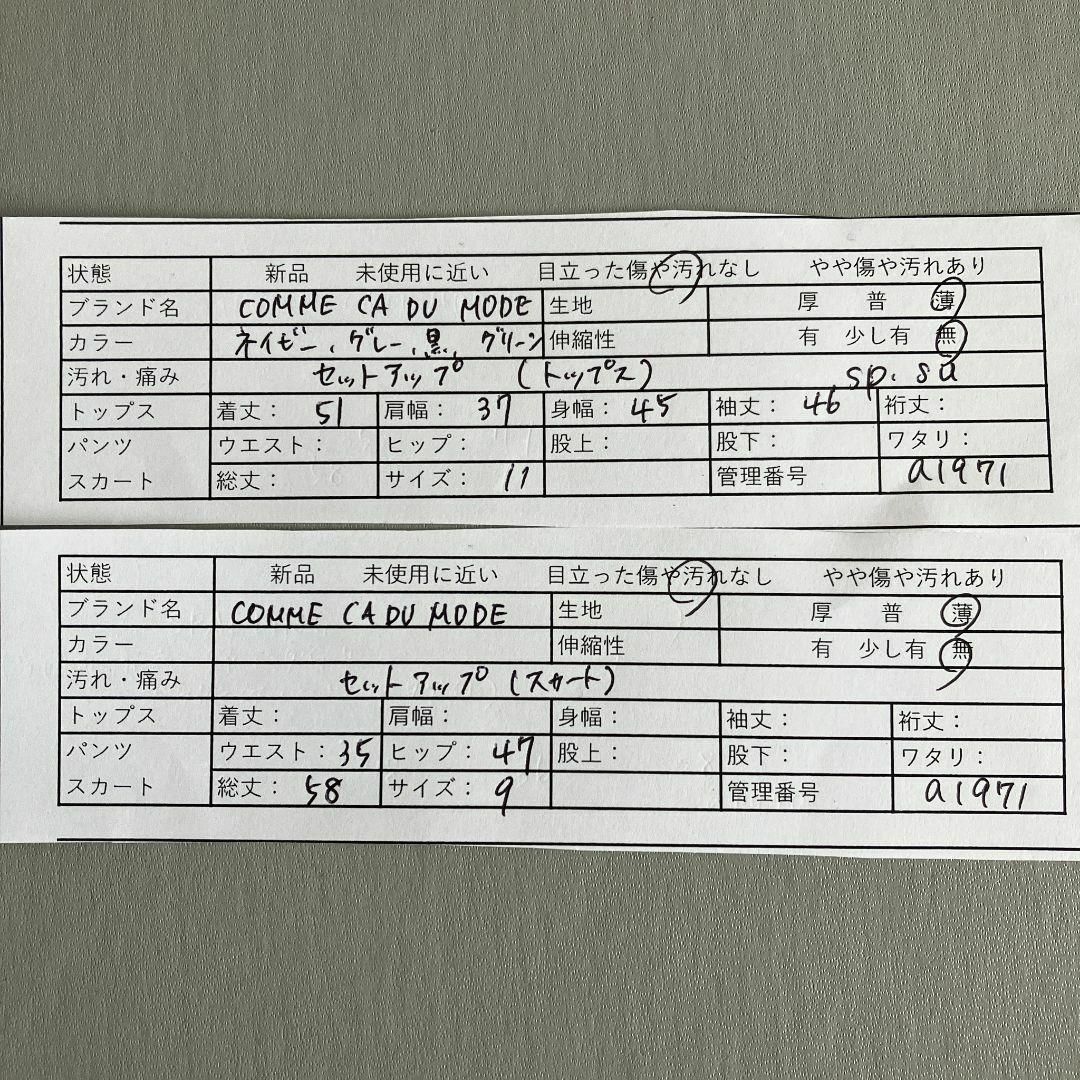 状態 新品 未使用に近い 目立った傷や汚れなし やや傷や汚れあり
ブランド名 COMME CA DU MODE 生地 厚 普 薄
カラー ネイビー、グレー、黒、グリーン 伸縮性 有 少し有 無
汚れ・痛み セットアップ (トップス) sp. su
トップス 着丈: 51 肩幅: 37 身幅: 45 袖丈: 46 裄丈:
パンツ ウエスト: ヒップ: 股上: 股下: ワタリ:
スカート 総丈: サイズ: 11 管理番号 a1971
状態 新品 未使用に近い 目立った傷や汚れなし やや傷や汚れあり
ブランド名 COMME CA DU MODE 生地 厚 普 薄
カラー 伸縮性 有 少し有 無
汚れ・痛み セットアップ (スカート)
トップス 着丈: 肩幅: 身幅: 袖丈: 裄丈:
パンツ ウエスト: 35 ヒップ: 47 股上: 股下: ワタリ:
スカート 総丈: 58 サイズ: 9 管理番号 a1971